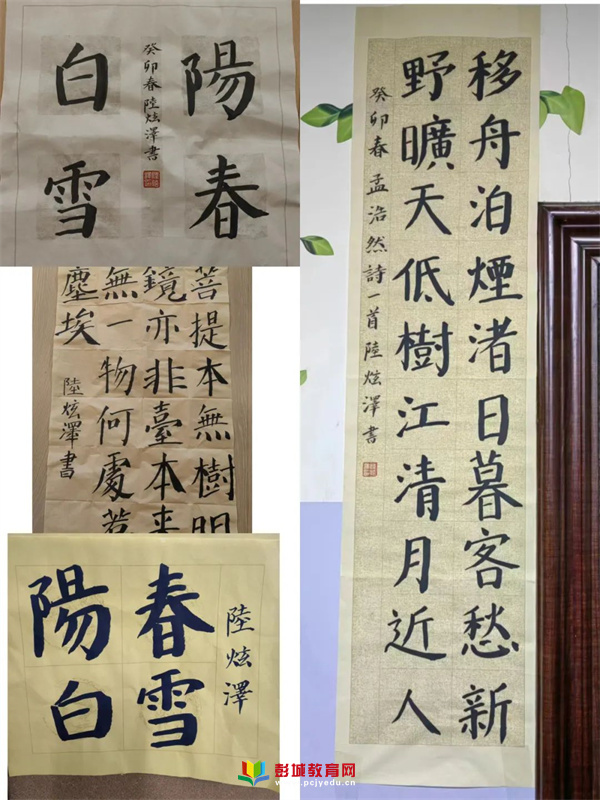 陽春
白雪
癸卯春陸炫澤書
菩提本無樹明
鏡亦非臺本来
無一物何處惹
塵埃
陸炫澤書
陽春
白雪
陸炫澤
移舟泊煙渚日暮客愁新
野曠天低樹江清月近人
癸卯春孟浩然詩一首陸炫澤書
彭城教育网
www.pcjyedu.cn